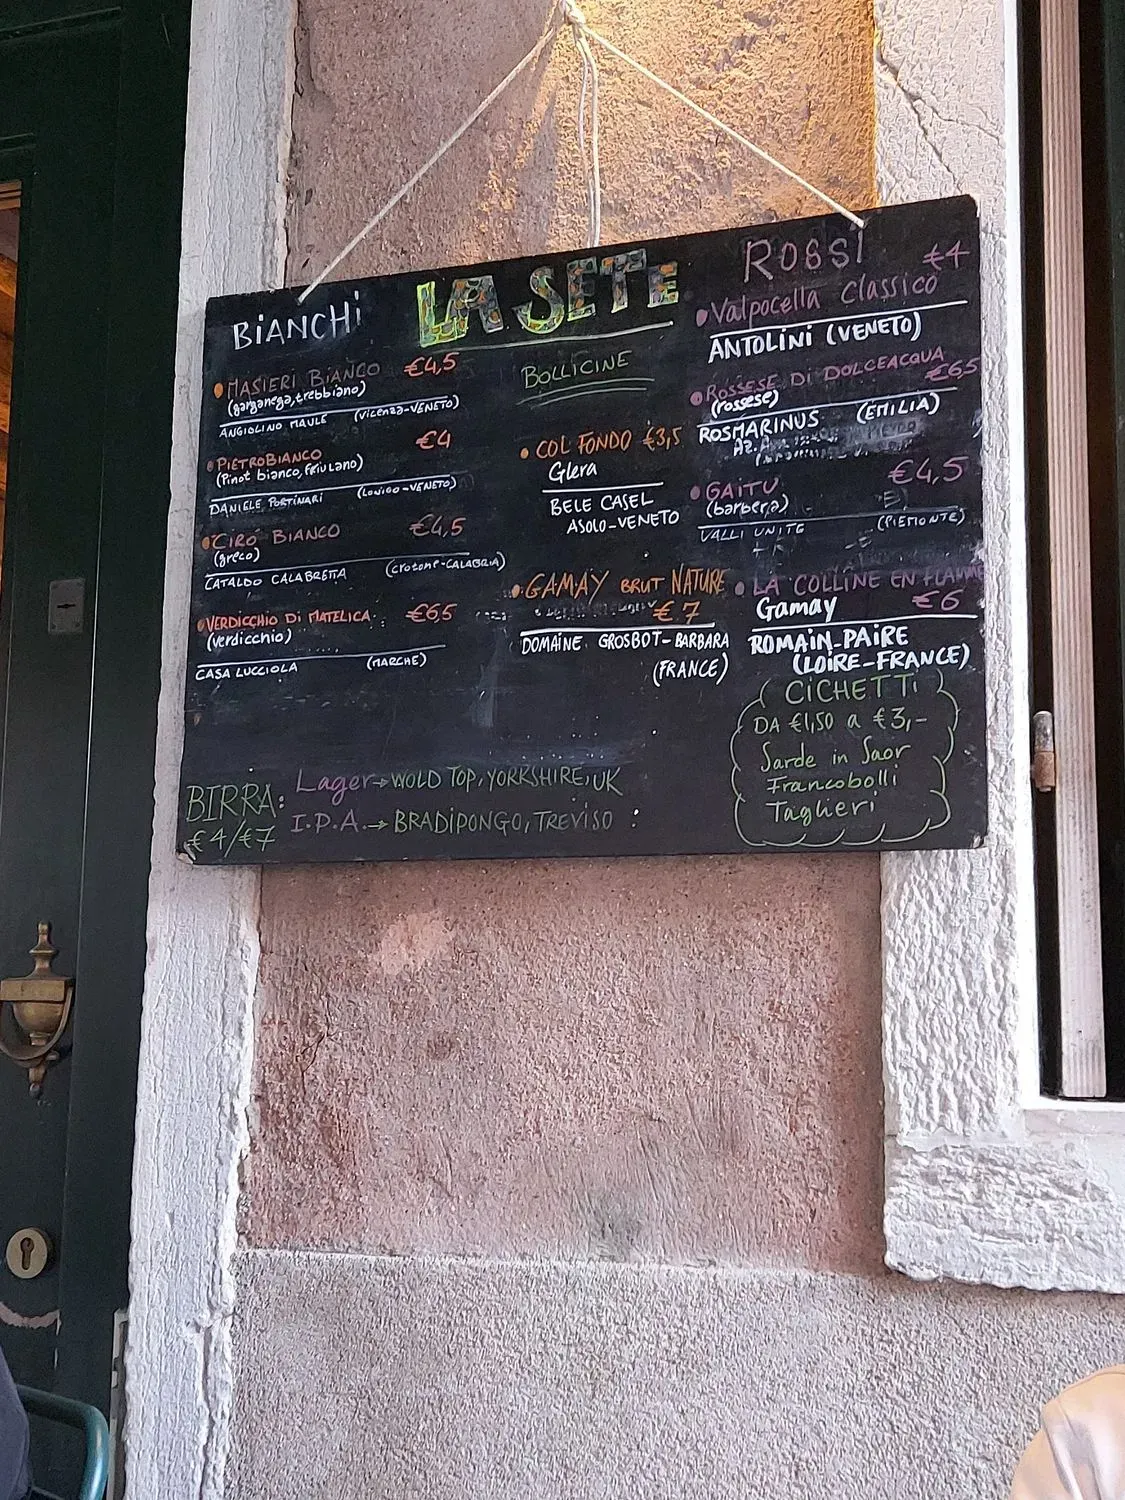 LA SETE
BIANCHI
MASIERI BIANCO €4,5
(garganega, trebbiano)
ANGIOLINO MAULE (VICENZA-VENETO)
PIETROBIANCO €4
(Pinot bianco, friulano)
DANIELE PORTINARI (LONIGO-VENETO)
CIRÒ BIANCO €4,5
(greco)
CATALDO CALABRETTA (crotone-CALABRIA)
VERDICCHIO DI MATELICA €6,5
(verdicchio)
CASA LUCCIOLA (MARCHE)
BOLLICINE
COL FONDO €3,5
Glera
BELE CASEL
ASOLO-VENETO
GAMAY BRUT NATURE
€7
DOMAINE GROSBOT-BARBARA
(FRANCE)
ROSSI
€4
Valpocella Classico
ANTOLINI (VENETO)
ROSSESE DI DOLCEACQUA
€6,5
(rossese)
ROSMARINUS (EMILIA)
€4,5
GAITU
(barbera)
VALLI UNITE (PIEMONTE)
LA COLLINE EN FLAMME
Gamay €6
ROMAIN-PAIRE
(LOIRE-FRANCE)
CICHETTI
DA €1,50 a €3,-
Sarde in Saor
Francobolli
Taglieri
BIRRA:
€4/€7
Lager→WOLD TOP, YORKSHIRE, UK
I.P.A.→BRADIPONGO, TREVISO